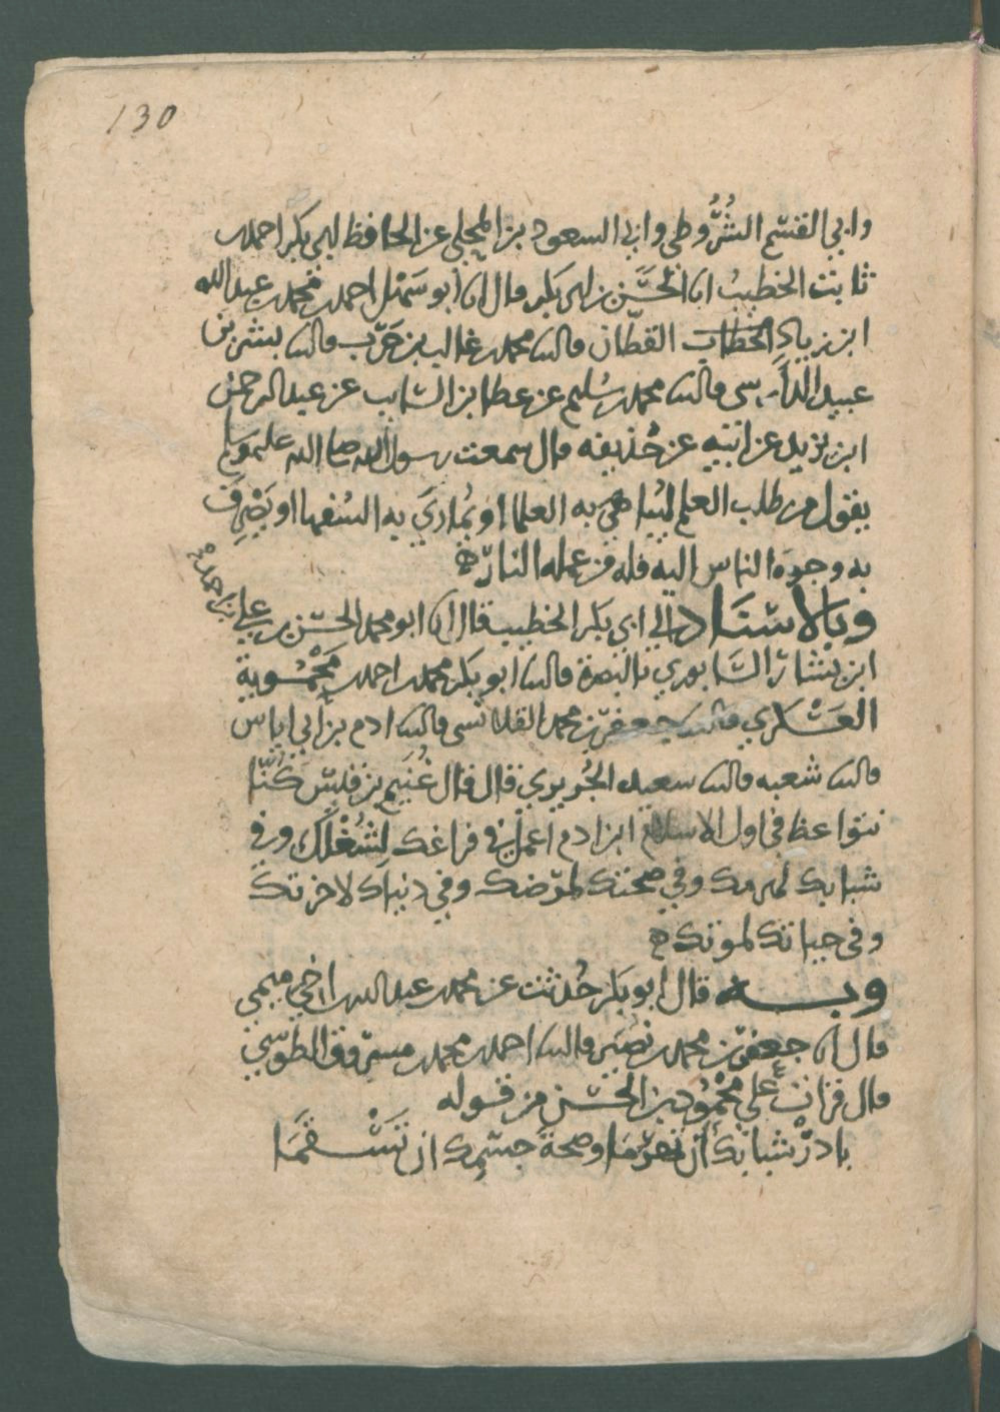 130
وابي القسم الشُّرُوطي وابي السعود بن المجلي عن الحافظ ابي بكر احمد بن
ثابت الخطيب انا الحَسَن بن ابي بكر قال انا ابو سَهْل احمد بن محمد بن عبد الله
ابن زياد القطّان قال ثنا محمد بن غالب بن حَرْب قال ثنا بشر بن
عبيد الدَّارسي قال ثنا محمد بن سُليم عن عطا بن السايب عن عبد الرحمن
ابن يزيد عن ابيه عن حُذيفه قال سمعت رسول الله صلى الله عليه وسلم
يقول من طلب العلم ليُباهي به العلما او يُمَاري به السُفها او يَصْرِفَ
به وجوهَ الناس اليه فله من عمله النارُ ه
وبالاسْنَاد الي ابي بكر الخطيب قال انا ابو محمد الحسَن بن علي بن احمد
ابن بَشار السَّابوري بالبصرة قال ثنا ابو بكر محمد بن احمد بن مَحْمُوية
العَسْكري قال ثنا جعفر بن محمد القلانسى قال ثنا ادم بن ابي اياس
قال ثنا شعبه قال ثنا سعيد الجُريري قال قال غُنَيم بن قيس كُنَّا
نتواعظ في اول الاسلام ابن ادم اعمل في فراغك لِشُغْلك وفي
شبابك لهرمك وفي صحتك لمرَضك وفي دنياك لاخرتك
وفى حياتك لموتك ه
وبــه قال ابو بكر حُدثت عن محمد بن عبد الله بن اخي ميمي
قال انا جعفر بن محمد بن نُصَير قال ثنا احمد بن محمد بن مسروق الطوسي
قال قرات على مَحْمُود بن الحَسَن من قوله
بادرْ شبابَكَ أن تهرَمَا وصحةَ جسْمِك ان تَسْقَمَا